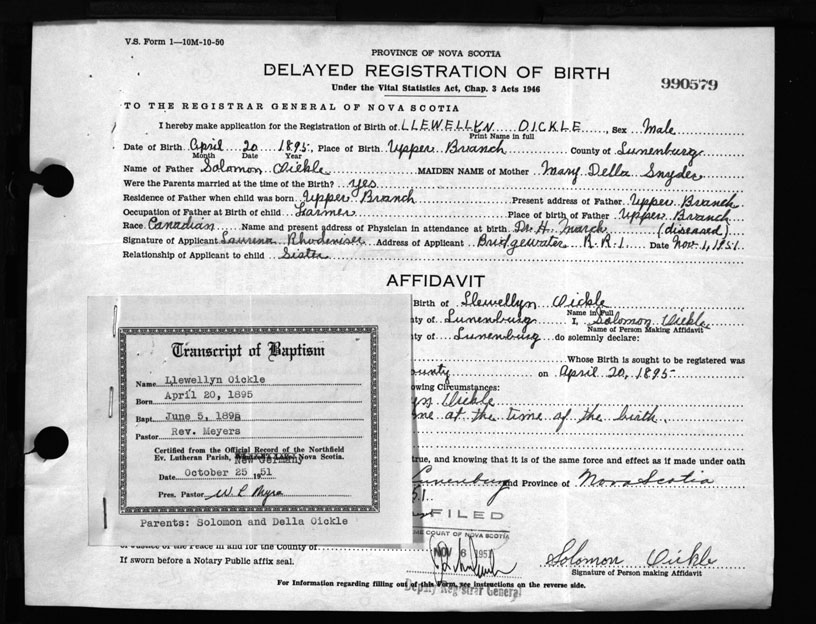 V.S. Form 1—10M-10-50
PROVINCE OF NOVA SCOTIA
DELAYED REGISTRATION OF BIRTH
990579
Under the Vital Statistics Act, Chap. 3 Acts 1946
TO THE REGISTRAR GENERAL OF NOVA SCOTIA
I hereby make application for the Registration of Birth of LLEWELLYN OICKLE, Sex Male
Print Name in full
Date of Birth April 20 1895, Place of Birth Upper Branch County of Lunenburg
Month Date Year
Name of Father Solomon Oickle MAIDEN NAME of Mother Mary Della Snyder
Were the Parents married at the time of the Birth? yes
Residence of Father when child was born Upper Branch Present address of Father Upper Branch
Occupation of Father at Birth of child Farmer Place of birth of Father Upper Branch
Race Canadian Name and present address of Physician in attendance at birth Dr. H. March (diseased)
Signature of Applicant Laurena Rhodeniser Address of Applicant Bridgewater R.R.1. Date Nov. 1, 1951.
Relationship of Applicant to child Sister
AFFIDAVIT
Birth of Llewellyn Oickle
Name in Full
ty of Lunenburg I, Solomon Oickle
Name of Person Making Affidavit
ty of Lunenburg do solemnly declare:
Whose Birth is sought to be registered was
ounty on April 20, 1895
owing Circumstances:
yn Oickle
one at the time of the birth.
true, and knowing that it is of the same force and effect as if made under oath
Lunenburg and Province of Nova Scotia
51.
Transcript of Baptism
Name Llewellyn Oickle
Born April 20, 1895
Bapt. June 5, 189
Pastor Rev. Meyers
Certified from the Official Record of the Northfield
Ev. Lutheran Parish, New Germany Nova Scotia.
Date October 25 1951
Pres. Pastor W. P. Myra
Parents: Solomon and Della Oickle
FILED
ME COURT OF NOVA SCOTIA
NOV 6 1951
of Justice of the Peace in and for the County of
If sworn before a Notary Public affix seal.
Solomon Oickle
Signature of Person making Affidavit
For Information regarding filling out of this Form, see instructions on the reverse side.
Deputy Registrar General